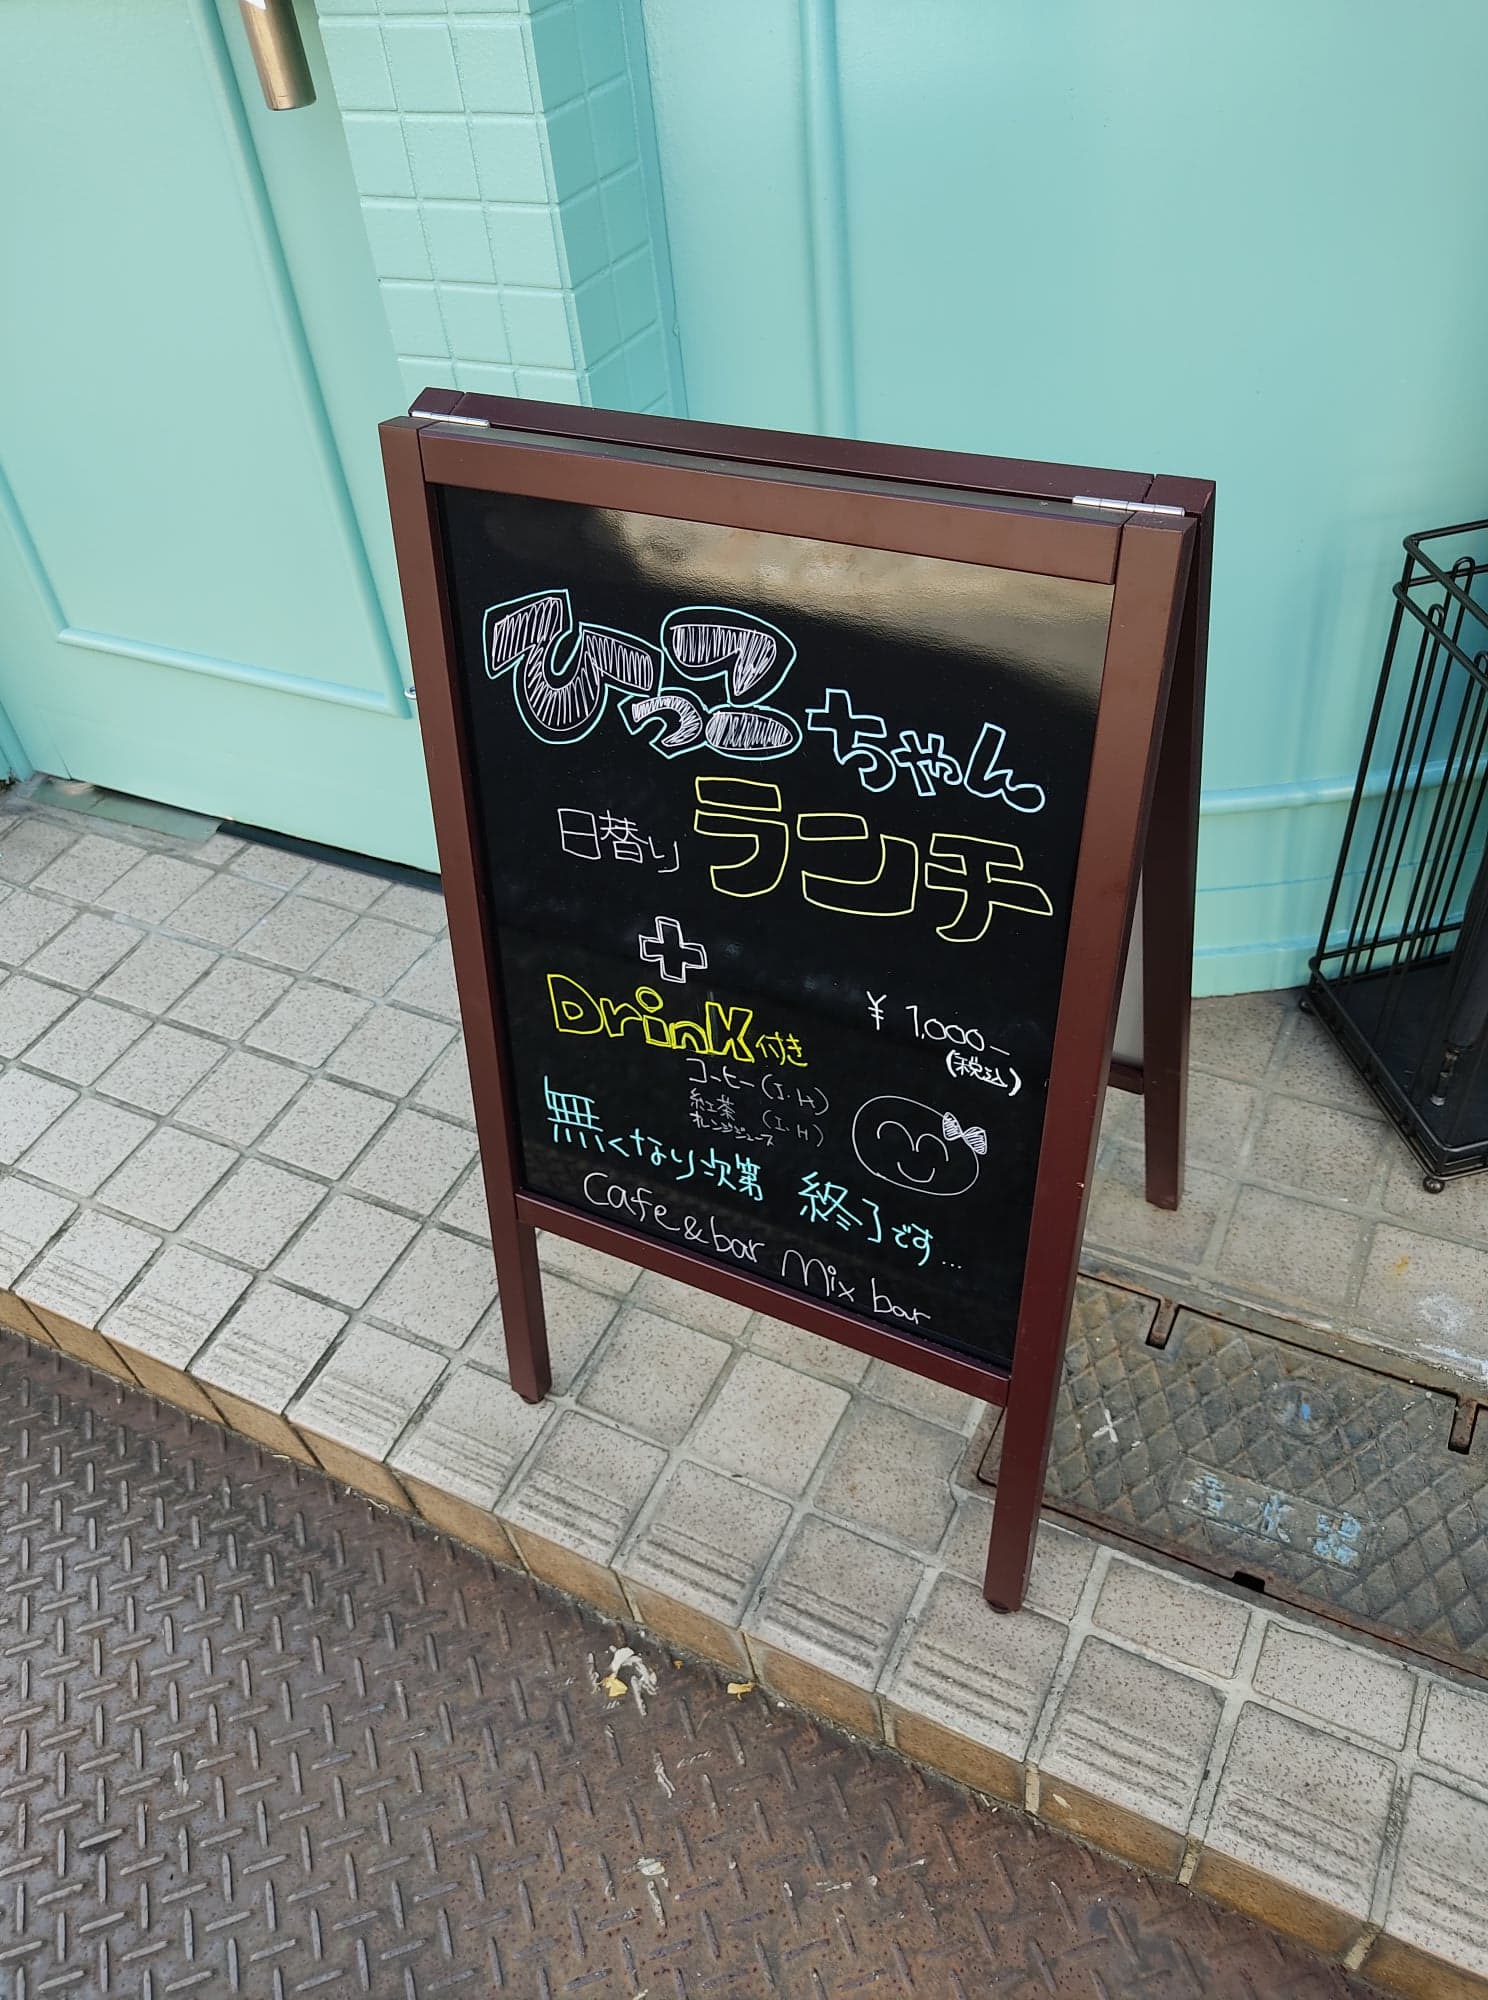 ひっこちゃん
日替りランチ
+
Drink付き
¥1,000-
(税込)
コーヒー(I・H)
紅茶 (I・H)
オレンジジュース
無くなり次第 終了です…
Cafe&bar Mix bar